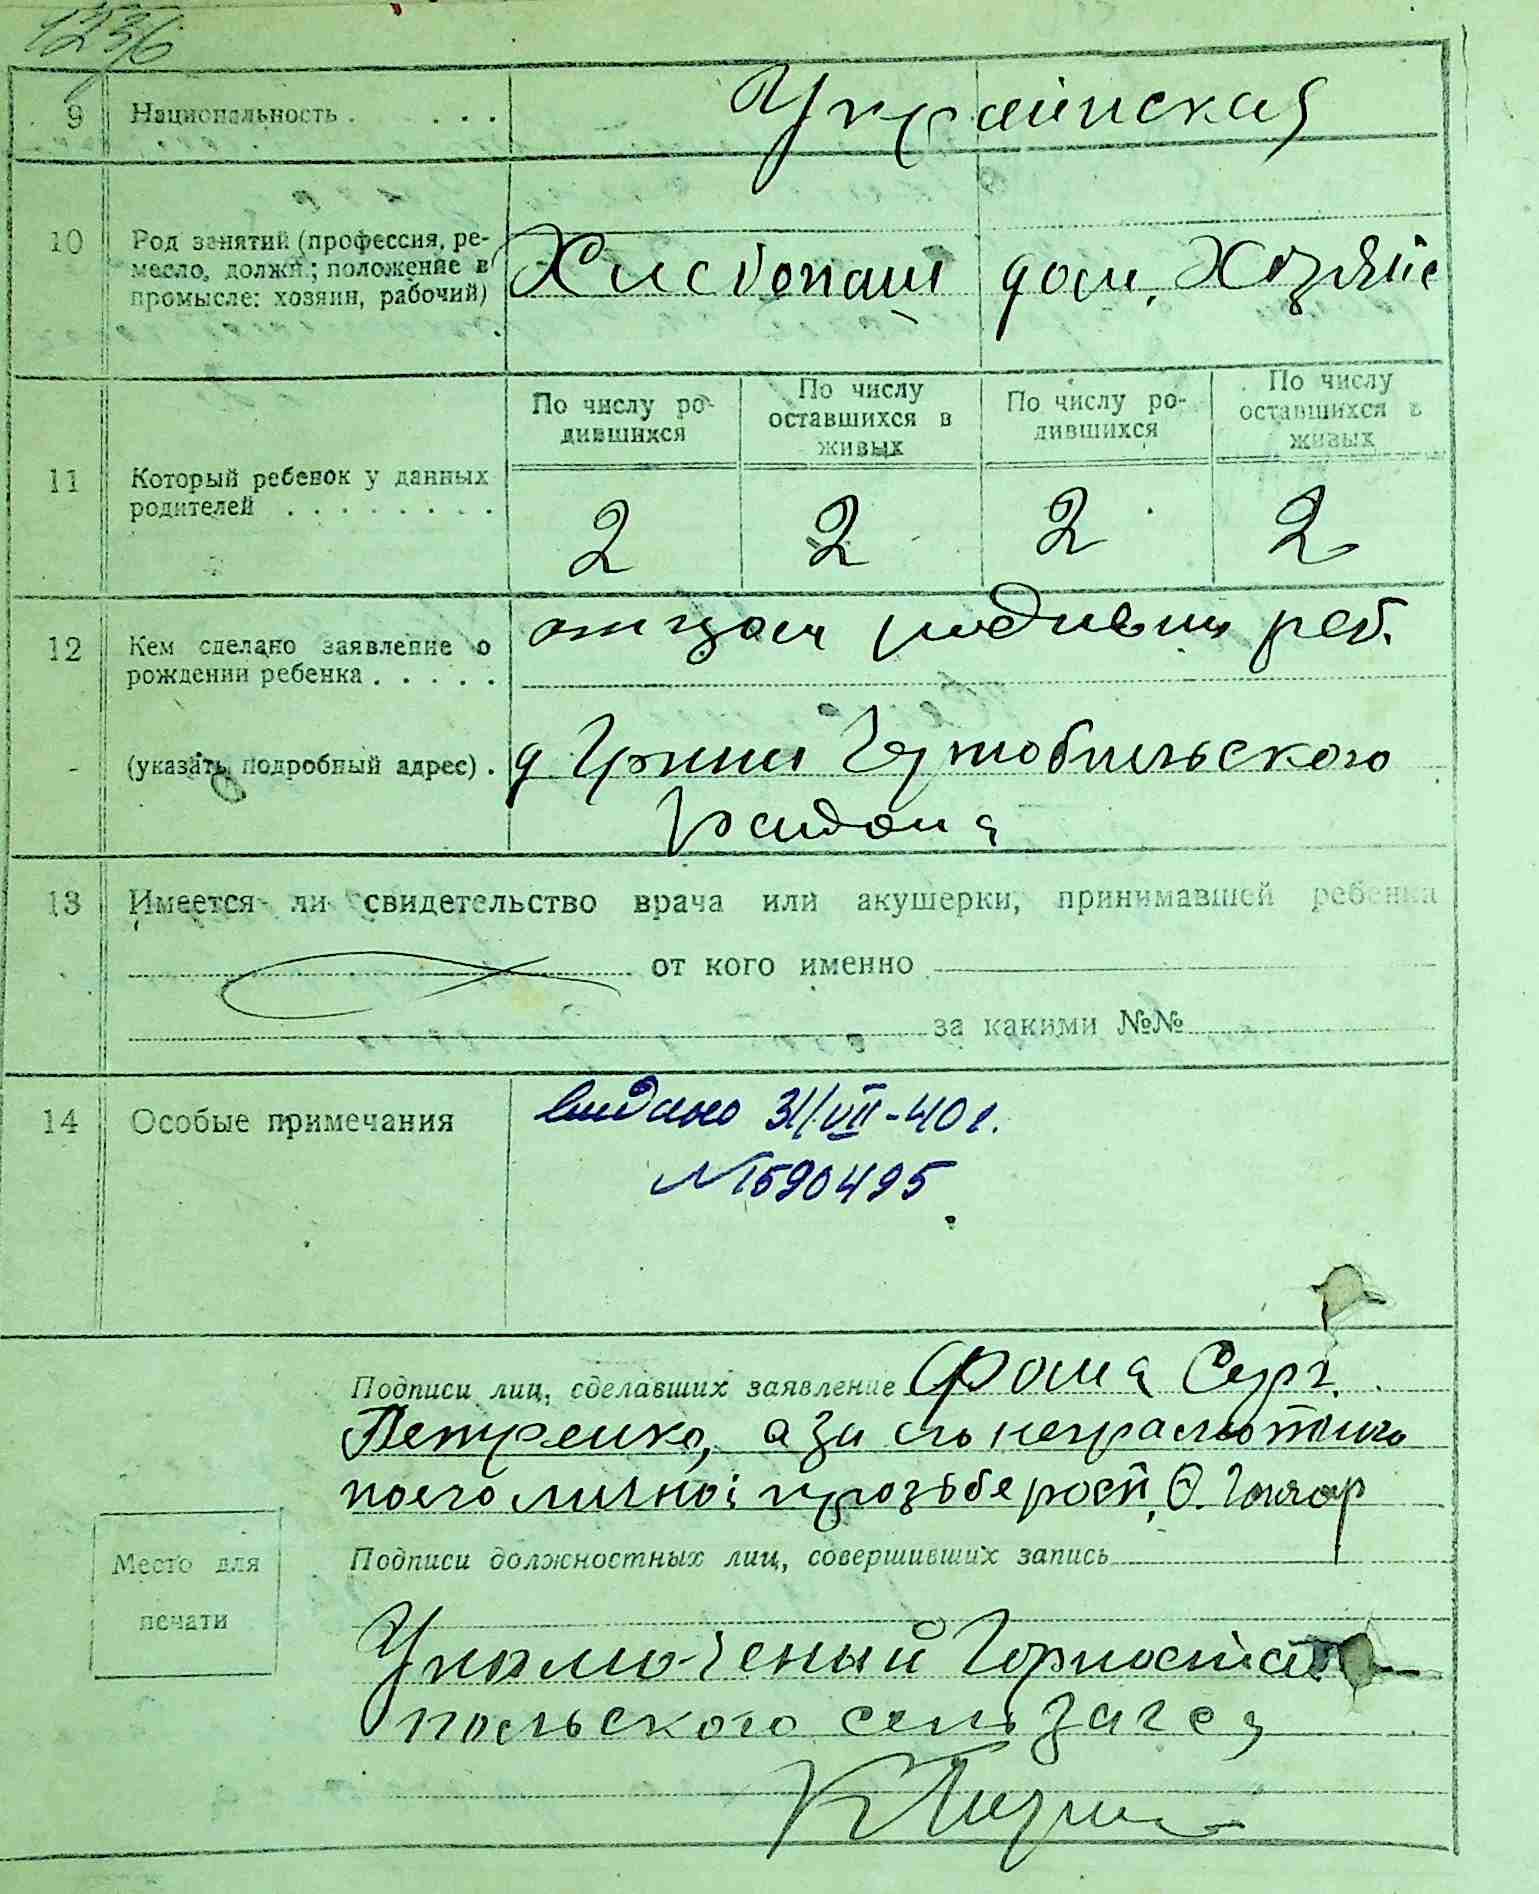 1236
9 Национальность . . . . . Украинская
10 Род занятий (профессия, ре-
месло, должн.; положение в
промысле: хозяин, рабочий)
Хлебопаш дом. Хозяйс
По числу ро-
дившихся
По числу
оставшихся в
живых
По числу ро-
дившихся
По числу
оставшихся в
живых
11 Который ребенок у данных
родителей . . . . . . . .
2 2 2 2
12 Кем сделано заявление о
рождении ребенка . . . . .
отцом реб.
(указать подробный адрес) .
д Чернобыльского
района
13 Имеется ли свидетельство врача или акушерки, принимавшей ребенка
от кого именно
за какими №№
14 Особые примечания
видано 31/VII-40 г.
№ 1590495
Подписи лиц, сделавших заявление Фома Серг.
Петренко, а за его неграмотного
по его личной прозьбе росп. О. Гончар
Подписи должностных лиц, совершивших запись
Место для
печати
Уполмоченый Горностай
польского сель загса